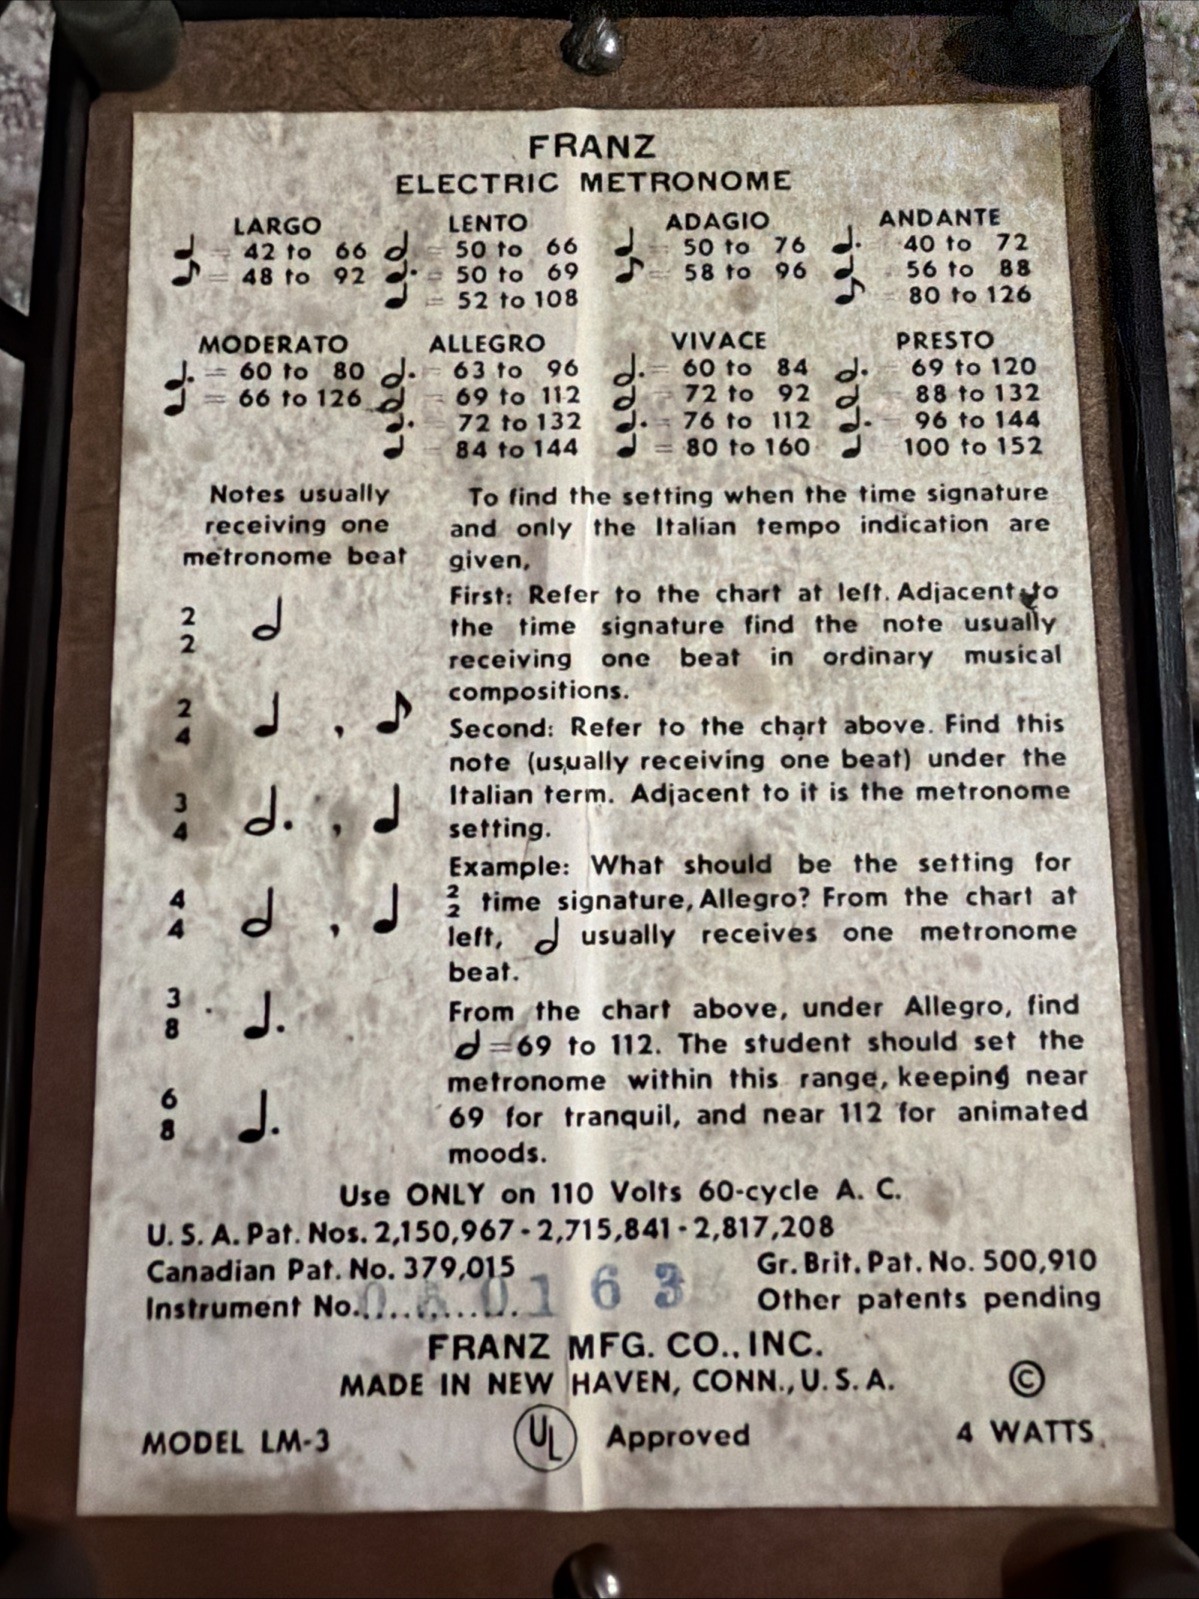 FRANZ
ELECTRIC METRONOME
LARGO LENTO ADAGIO ANDANTE
♩ = 42 to 66 𝅗𝅥 = 50 to 66 ♩ = 50 to 76 ♩. 40 to 72
♪ = 48 to 92 ♩. = 50 to 69 ♪ = 58 to 96 ♩ 56 to 88
♩ = 52 to 108 ♪ 80 to 126
MODERATO ALLEGRO VIVACE PRESTO
♩. = 60 to 80 𝅗𝅥. = 63 to 96 𝅗𝅥. = 60 to 84 𝅗𝅥. 69 to 120
♩ = 66 to 126 𝅗𝅥 = 69 to 112 𝅗𝅥 = 72 to 92 𝅗𝅥 88 to 132
♩. 72 to 132 ♩. = 76 to 112 ♩. 96 to 144
♩ = 84 to 144 ♩ = 80 to 160 ♩ 100 to 152
Notes usually
receiving one
metronome beat
2/2 𝅗𝅥
2/4 ♩ , ♪
3/4 𝅗𝅥. , ♩
4/4 𝅗𝅥 , ♩
3/8 ♩.
6/8 ♩.
To find the setting when the time signature
and only the Italian tempo indication are
given,
First: Refer to the chart at left. Adjacent to
the time signature find the note usually
receiving one beat in ordinary musical
compositions.
Second: Refer to the chart above. Find this
note (usually receiving one beat) under the
Italian term. Adjacent to it is the metronome
setting.
Example: What should be the setting for
2/2 time signature, Allegro? From the chart at
left, 𝅗𝅥 usually receives one metronome
beat.
From the chart above, under Allegro, find
𝅗𝅥 = 69 to 112. The student should set the
metronome within this range, keeping near
69 for tranquil, and near 112 for animated
moods.
Use ONLY on 110 Volts 60-cycle A. C.
U. S. A. Pat. Nos. 2,150,967 - 2,715,841 - 2,817,208
Canadian Pat. No. 379,015 Gr. Brit. Pat. No. 500,910
Instrument No. Other patents pending
FRANZ MFG. CO., INC.
MADE IN NEW HAVEN, CONN., U. S. A. ©
MODEL LM-3 UL Approved 4 WATTS